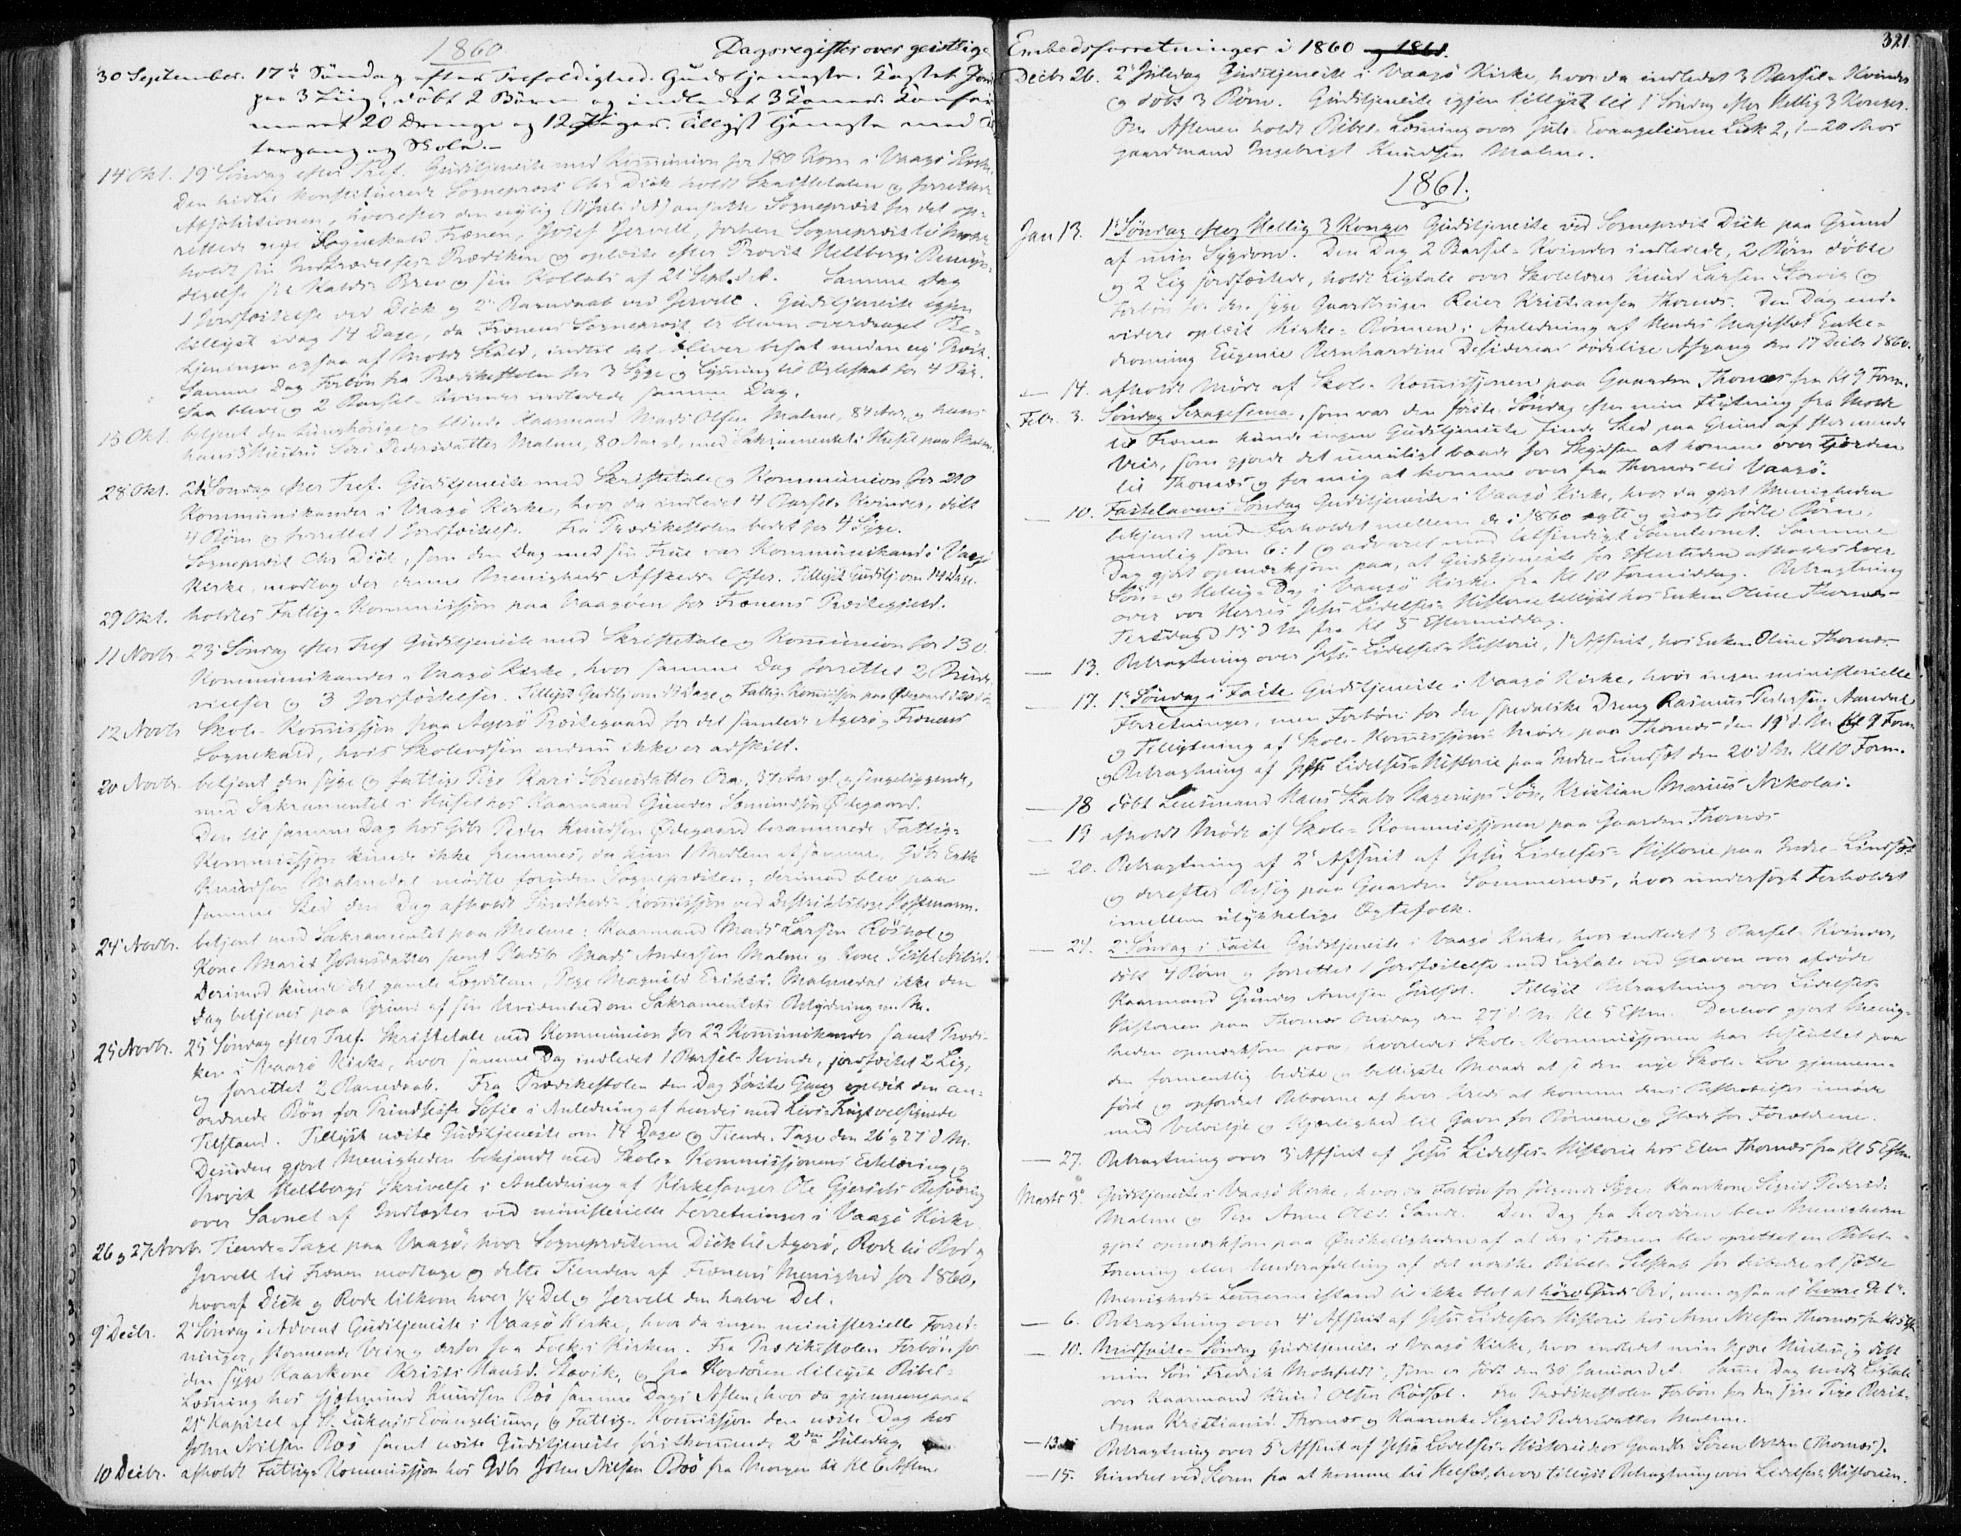 1860
Dagsregister over geistlige
30 September. 17de Søndag efter Trefoldighed. Gudstjeneste. Kastet Jord
paa 3 Liig, døbt 2 Børn og indledet 3 Koner. Confir-
meret 20 Drenge og 12 Piger. Tillyst Tjeneste med
og Skole.-
14 Okt. 19 Søndag efter Tref. Gudstjeneste med Kommunion for 180 Kom. i Vaagø Kirke.
Den hidtil konstituerede Sognepræst Chr Dick holdt Skriftetalen og forrettede
Absolutionen, hvorefter den nylig ansatte Sognepræst for det op-
rettede nye Sognekald Frænen, Josef Jervell, forhen Sognepræst til
holdt sin Indtrædelses-Prædiken og oplæste efter Provst Hellbergs
sit Kalds-Brev og sin Kollats af 21 Sept. d. A. Samme Dag
1 Jordfæstelse ved Dick og 2 Barnedaab ved Jervell. Gudstjeneste igjen
tillyst idag 14 Dage, da Frænens Sognepræst er bleven overdraget Be-
tjeningen ogsaa af Molde Kald, indtil det bliver besat med en ny Præst.
Samme Dag Forbøn fra Prædikestolen for 3 Syge og Lysning til Ægteskab for 4 Par.
Saa bleve og 2 Barsel-Kvinder indledede samme Dag.
15 Okt. betjent den tunghørige og blinde Kaarmand Mads Olsen Malme, 84 Aar, og hans
Hustru Siri Pedersdatter Malme, 80 Aar gl, med Sakramentet i Huset paa Malme.
28 Okt. 21 Søndag efter Tref. Gudstjeneste med Skriftetale og Kommunion for 210
Kommunikander i Vaagø Kirke, hvor da indledet 4 Barsel-Kvinder, døbt
4 Børn og forrettet 1 Jordfæstelse. Fra Prædikestolen bedet for 4 Syge.
Sognepræst Chr Dick, som den Dag med sin Frue var Kommunikand i Vaagø
Kirke, modtog der denne Menigheds Afskeds-Offer. Tillyst Gudstj. om 14 Dage.
29 Okt. holdtes Fattig-Kommission paa Vaagøen for Frænens Præstegjeld.
11 Novbr. 23 Søndag efter Tref Gudstjeneste med Skriftetale og Kommunion for 130
Kommunikander i Vaagø Kirke, hvor samme Dag forrettet 2 Brude-
vielser og 3 Jordfæstelser. Tillyst Gudstj. om 14 Dage, og Fattig-Kommission paa Ødegaard
12 Novbr Skole-Kommission paa Agerø Præstegaard for det samlede Agerø og Frænens
Sognekald, hvis Skolevæsen endnu ikke er adskilt.
20 Novbr. betjent den syge og fattige Pige Kari Sørensdatter 37 Aar gl, sengeliggende,
med Sakramentet i Huset hos Kaarmand Gunder Ødegaard.
Den til samme Dag hos Gdbr Peder Knudsen Ødegaard berammede Fattig-
Kommission kunde ikke fremmes, da kun 1 Medlem af samme, Gdbr Erik
Knudsen Malmedal mødte foruden Sognepræsten; derimod blev paa
samme Sted den Dag afholdt Sundheds-Kommission ved Distriktslæge Hoffmann.
24 Novbr. betjent med Sakramentet paa Malme: Kaarmand Mads Larsen Røshol og
Kone Marit Johnsdatter samt Pladsm. Mads Andersen Malme og Kone Sissel
Derimod kunde det gamle Lægdslem, Pige Magnild Eriksd. Malmedal ikke den
Dag betjenes paa Grund af sin Uvidenhed om Sakramentets Betydning m. M.
25 Novbr. 25 Søndag efter Tref. Skriftetale med Kommunion for 22 Kommunikander samt Prædi-
ken i Vaagø Kirke, hvor samme Dag indledet 1 Barsel-Kvinde, jordfæstet 2 Lig,
og forrettet 2 Barnedaab. Fra Prædikestolen den Dag første Gang oplæst den an-
ordnede Bøn for Prindsesse Sofie i Anledning af hendes med Livs-Frugt velsignede
Tilstand. Tillyst næste Gudstjeneste om 14 Dage og Tiende-Tage den 26 og 27 d. M.
Desuden gjort Menigheden bekjendt med Skole-Kommissionens Erklæring og
Provst Hellbergs Skrivelse i Anledning af Kirkesanger Ole Gjersets Besværing
over Savnet af Indtægter ved ministerielle Forretninger i Vaagø Kirke.
26 og 27 Novbr Tiende-Tage paa Vaagø, hvor Sognepræsterne Dick til Agerø, Rode til Bod og
Jervell til Frænen modtoge og delte Tienden af Frænens Menighed for 1860,
hvoraf Dick og Rode tilkom hver 1/4 Del og Jervell den halve Del.
9 Decbr. 2 Søndag i Advent Gudstjeneste i Vaagø Kirke, hvor da ingen ministerielle Forret-
ninger, stormende Veir og derfor faa Folk i Kirken. Fra Prædikestolen Forbøn for
den syge Kaarkone Kristi Hansd. Stavik, og fra Kordøren tillyst Bibel-
Læsning hos Gjelmund Knudsen Bøe samme Dags Aften, hvor da gjennemgaaet
21 Kapitel af St. Lukas's Evangelium, og Fattig-Kommission den næste Dag hos
John Nilsen Bøe samt næste Gudstjeneste førstkommende 2den Juledag.
10 Decbr. afholdt Fattig-Kommission hos Gdbr John Nilsen Bøe fra Morgen til Kl 6 Aften.
Embedsforretninger i 1860 og 1861.
321
Decbr 26. 2 Juledag Gudstjeneste i Vaagø Kirke, hvor da indledet 3 Barsel-Kvinder
og døbt 3 Børn. Gudstjeneste igjen tillyst til 1 Søndag efter Hellig 3 Konger.
Om Aftenen holdt Bibel-Læsning over Jule-Evangelierne Luk 2, 1-20 hos
gaardmand Ingebrigt Knudsen Malme.
1861.
Jan 13. 1 Søndag efter Hellig 3 Konger Gudstjeneste ved Sognepræst Dick paa Grund
af min Sygdom. Den Dag 2 Barsel-Kvinder indledede, 2 Børn døbte
og 2 Lig jordfæstede, holdt Ligtale over Skolelærer Knud Larsen Stavig og
Forbøn for den syge Gaardbruger Reier Kristiansen Thornes. Den Dag end-
videre oplæst Kirke-Bønnen i Anledning af Hendes Majestæt Enke-
dronning Eugenie Bernhardine Desiderias dødelige Afgang den 17 Decbr 1860.
— 14. afholdt Møde af Skole-Kommissionen paa Gaarden Thornes fra Kl 9 Form.
Febr. 3. Søndag Sexagesima, som var den første Søndag efter min Flytning fra Molde
til Frænen kunde ingen Gudstjeneste finde Sted paa Grund af stormende
Veir, som gjorde det umuligt baade for Skydsen at komme over Fjorden
til Thornes og for mig at komme over fra Thornes til Vaagø.
— 10. Fastelavens Søndag Gudstjeneste i Vaagø Kirke, hvor da gjort Menigheden
bekjendt med Forholdet mellem de i 1860 ægte og uægte fødte Børn,
nemlig som 6:1 og advaret mod letsindigt Samlevnet. Samme
Dag gjort opmærksom paa, at Gudstjeneste for Eftertiden afholdes hver
Søn- og Hellig-Dag i Vaagø Kirke fra Kl 10 Formiddag. Betragtning
over vor Herres Jesu Lidelses-Historie tillyst hos Enken Oline Thornes
Torsdag d. 13 d. M. fra Kl 5 Eftermiddag.
— 13. Betragtning over Jesu Lidelses-Historie, 1 Afsnit, hos Enken Oline Thornes.
— 17. 1 Søndag i Faste Gudstjeneste i Vaagø Kirke, hvor ingen ministerielle
Forretninger, men Forbøn for den spedalske Dreng Rasmus Pedersen Aandal
og Tillysning af Skole-Kommissions-Møde paa Thornes den 19 d. M. Kl 9 Form
og Betragtning af Jesu Lidelses-Historie paa Indre-Lindset den 20 d. M. Kl 10 Form.
— 18 døbt Lensmand Hans Stabo Hagerups Søn, Kristian Marius Nikolai.
— 19 afholdt Møde af Skole-Kommissionen paa Gaarden Thornes
— 20. Betragtning af 2 Afsnit af Jesu Lidelses-Historie paa Indre-Lindset
og derefter Besøg paa Gaarden Sommernes, hvor undersøgt Forholdet
imellem ulykkelige Ægtefolk.
— 24. 2 Søndag i Faste Gudstjeneste i Vaagø Kirke, hvor indledet 3 Barsel-Kvinder,
døbt 4 Børn og forrettet 1 Jordfæstelse med Ligtale ved Graven over afdøde
Kaarmand Gunder Arnesen Julset. Tillyst Betragtning over Lidelses-
Historien paa Thornes Onsdag den 27 d. M. Kl 5 Efterm. Derhos gjort Menig-
heden opmærksom paa, hvorledes Skole-Kommissionen har besluttet paa
den formentlig bedste og billigste Maade at se den nye Skole-Lov gjennem-
ført og opfordret Beboerne af hver Kreds at komme dens Bestræbelser imøde
med Velvilje og Kjærlighed til Gavn for Børnene og Glæde for Forældrene.
— 27. Betragtning over 3 Afsnit af Jesu Lidelses-Historie hos Elen Thornes fra Kl 5 Efterm.
Marts 3 Gudstjeneste i Vaagø Kirke, hvor da Forbøn for følgende Syge: Kaarkone Sigrid Pedersd.
Malme og Pige Anne Olsd. Sande. Den Dag fra Kordøren blev Menigheden
gjort opmærksom paa Ønskeligheden af at der i Frænen blev oprettet en Bibel-
Forening eller Underafdeling af det norske Bibel-Selskab for derved at sætte
Menigheds-Lemmerne istand til ikke blot at høre Guds Ord, men ogsaa at bevare Det.
— 6. Betragtning over 4 Afsnit af Jesu Lidelses Historie hos Arne Nielsen Thornes fra Kl 5 Eft
— 10. Midfaste-Søndag Gudstjeneste i Vaagø Kirke, hvor indledet min kjære Hustru, og døbt
min Søn Fredrik Mohrfeldt, som er født den 30 Januar d. A. Samme Dag holdt Ligtale
over Kaarmand Knud Olsen Rødset. Fra Prædikestolen Forbøn for den syge Pige Berit-
Anna Kristiansd. Thornes og Kaarenke Sigrid Pedersdatter Malme.
— 13 Betragtning over 5 Afsnit af Jesu Lidelses-Historie hos Gaardbr Søren (Thornes).
— 15. hindret ved Storm fra at komme til Helset, hvor tillyst Betragtning over Lidelses-Historien.